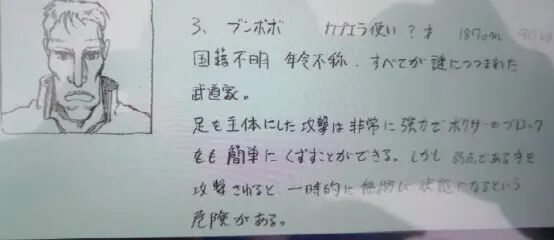 3、ブンボボ カプエラ使い ?才 187cm 90kg
国籍不明 年令不称、すべてが謎につつまれた
武道家。
足を主体にした攻撃は非常に強力でボクサーのブロック
をも簡単にくずすことができる。しかし弱点である手を
攻撃されると一時的に無防び状態になるという
危険がある。